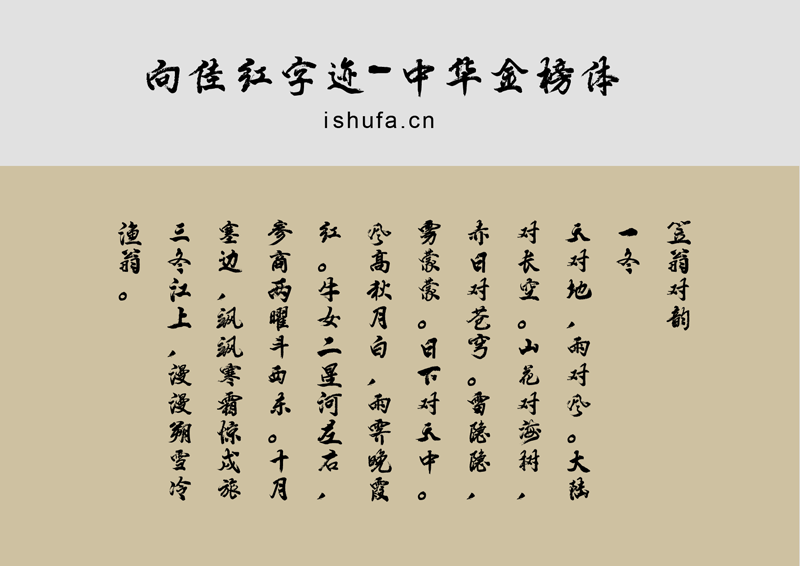 向佳红字迹-中华金榜体
ishufa.cn
笠翁对韵
一冬
天对地，雨对风。大陆
对长空。山花对海树，
赤日对苍穹。雷隐隐，
雾蒙蒙。日下对天中。
风高秋月白，雨霁晚霞
红。牛女二星河左右，
参商两曜斗西东。十月
塞边，飒飒寒霜惊戍旅
三冬江上，漫漫朔雪冷
渔翁。